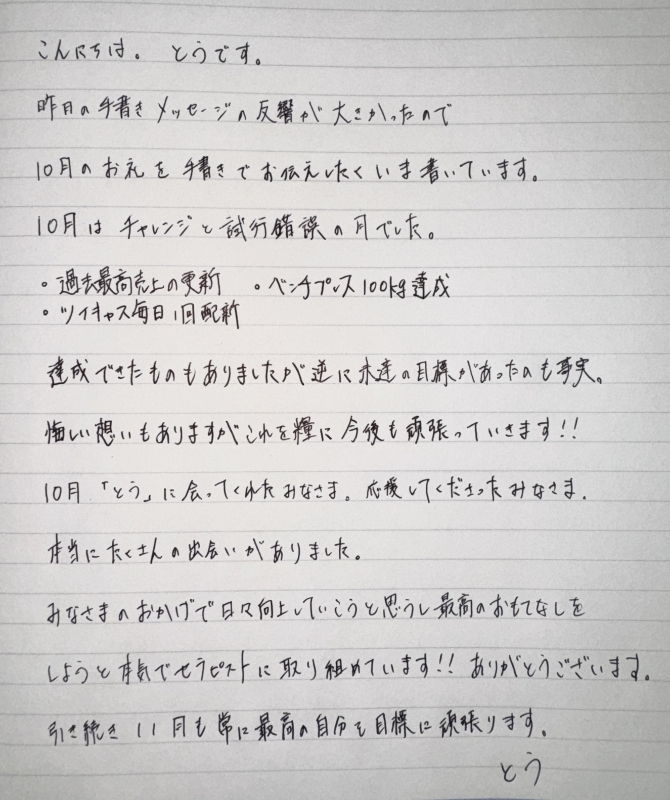 こんにちは。 とうです。
昨日の手書きメッセージの反響が大きかったので
10月のお礼を手書きでお伝えしたくいま書いています。
10月はチャレンジと試行錯誤の月でした。
・過去最高売上の更新 ・ベンチプレス100kg達成
・ツイキャス毎日1回配新
達成できたものもありましたが逆に未達の目標があったのも事実。
悔しい想いもありますがこれを糧に今後も頑張っていきます!!
10月「とう」に会ってくれたみなさま。応援してくださったみなさま.
本当にたくさんの出会いがありました。
みなさまのおかげで日々向上していこうと思うし最高のおもてなしを
しようと本気でセラピストに取り組めています!! ありがとうございます。
引き続き11月も常に最高の自分を目標に頑張ります。
とう